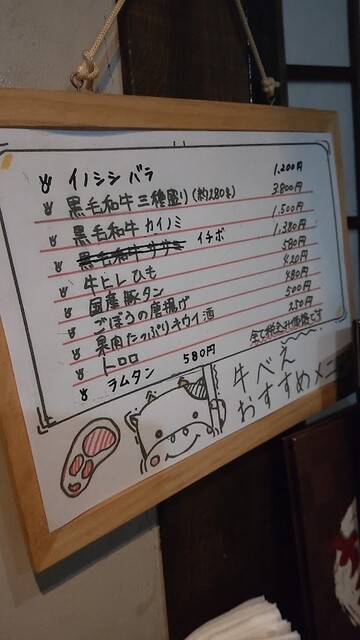 イノシシ バラ 1.200円
黒毛和牛 三種盛り(約280g) 3.800円
黒毛和牛 カイノミ 1.500円
黒毛和牛 イチボ 1.380円
牛ヒレひも 580円
国産豚タン 420円
ごぼうの唐揚げ 480円
果肉たっぷりキウイ酒 500円
トロロ 250円
ラムタン 580円
全て税込み価格です
牛べえ
おすすめメニ